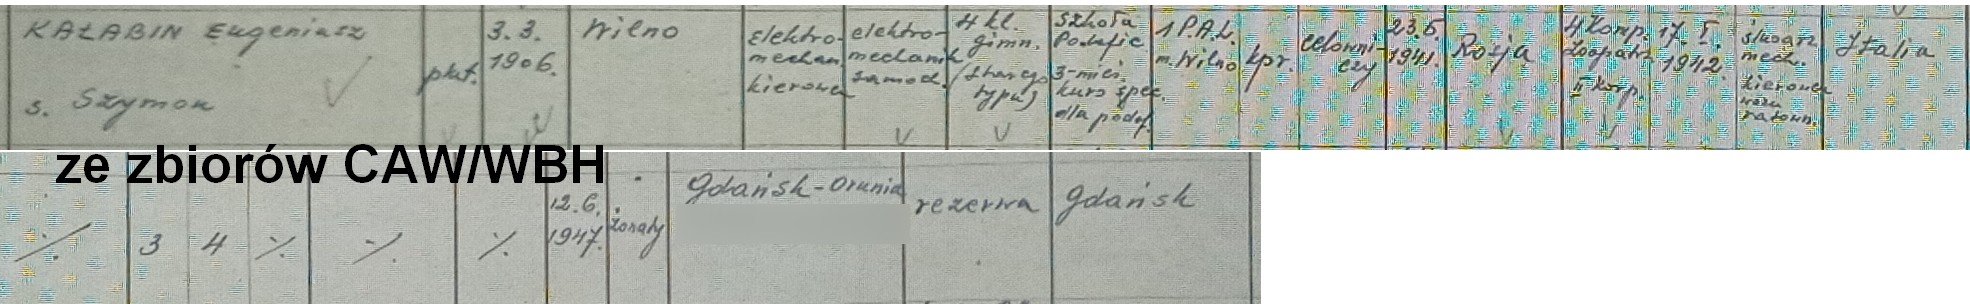 KAŁABIN Eugeniusz
s. Szymon
plut.
3.3.
1906.
Wilno
elektro-
mechan.
kierowca
elektro-
mechanik
samoch.
4 kl.
gimn.
(starego
typu)
Szkoła
Podofic.
3-mieś.
kurs spec.
dla podof.
1 P.A.L.
m. Wilno
kpr.
celowni-
czy
23.6.
1941.
Rosja
4 Komp.
Zaopatrz.
II Korp.
17. I.
1942.
ślusarz
mech.
kierowca
wozu
ratown.
Italia
ze zbiorów CAW/WBH
%.
3
4
%.
%.
%.
12.6.
1947.
żonaty
Gdańsk-Orunia
rezerwa
Gdańsk